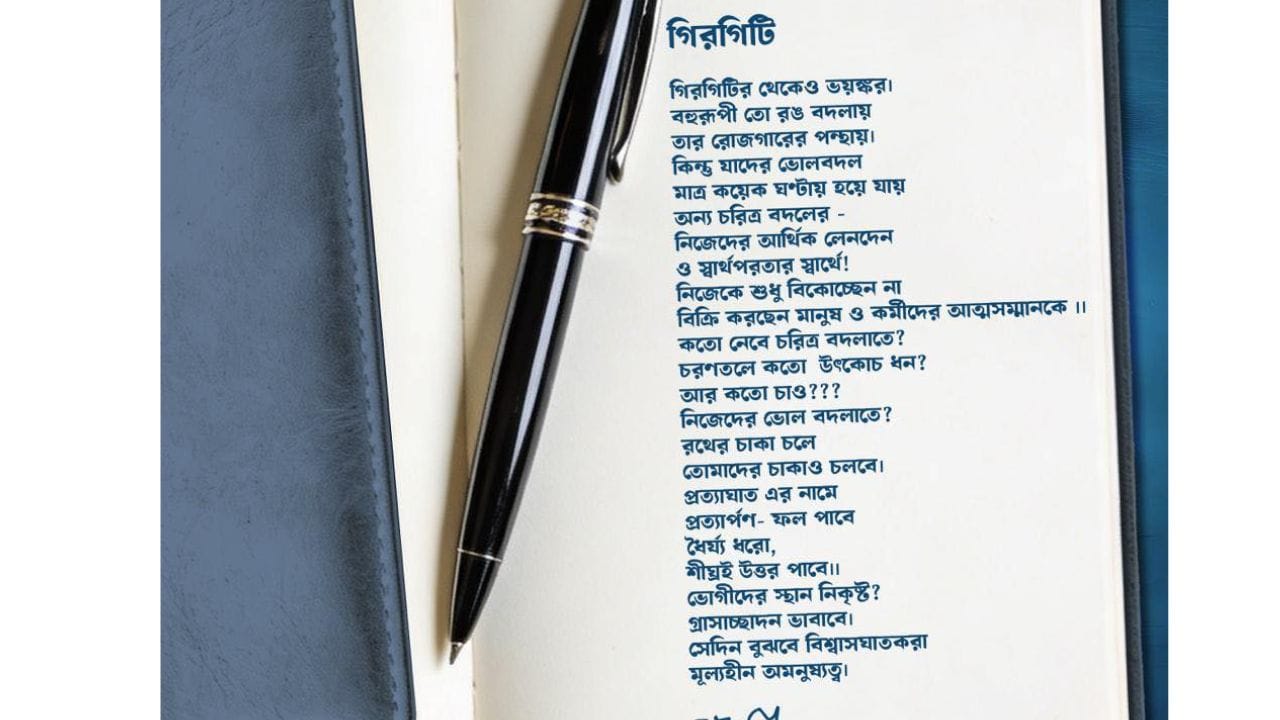 গিরগিটি
গিরগিটির থেকেও ভয়ঙ্কর।
বহুরূপী তো রঙ বদলায়
তার রোজগারের পন্থায়।
কিন্তু যাদের ভোলবদল
মাত্র কয়েক ঘণ্টায় হয়ে যায়
অন্য চরিত্র বদলের -
নিজেদের আর্থিক লেনদেন
ও স্বার্থপরতার স্বার্থে!
নিজেকে শুধু বিকোচ্ছেন না
বিক্রি করছেন মানুষ ও কর্মীদের আত্মসম্মানকে ।।
কতো নেবে চরিত্র বদলাতে?
চরণতলে কতো উৎকোচ ধন?
আর কতো চাও???
নিজেদের ভোল বদলাতে?
রথের চাকা চলে
তোমাদের চাকাও চলবে।
প্রত্যাঘাত এর নামে
প্রত্যার্পণ- ফল পাবে
ধৈর্য্য ধরো,
শীঘ্রই উত্তর পাবে।।
ভোগীদের স্থান নিকৃষ্ট?
গ্রাসাচ্ছাদন ভাবাবে।
সেদিন বুঝবে বিশ্বাসঘাতকরা
মূল্যহীন অমনুষ্যত্ব।